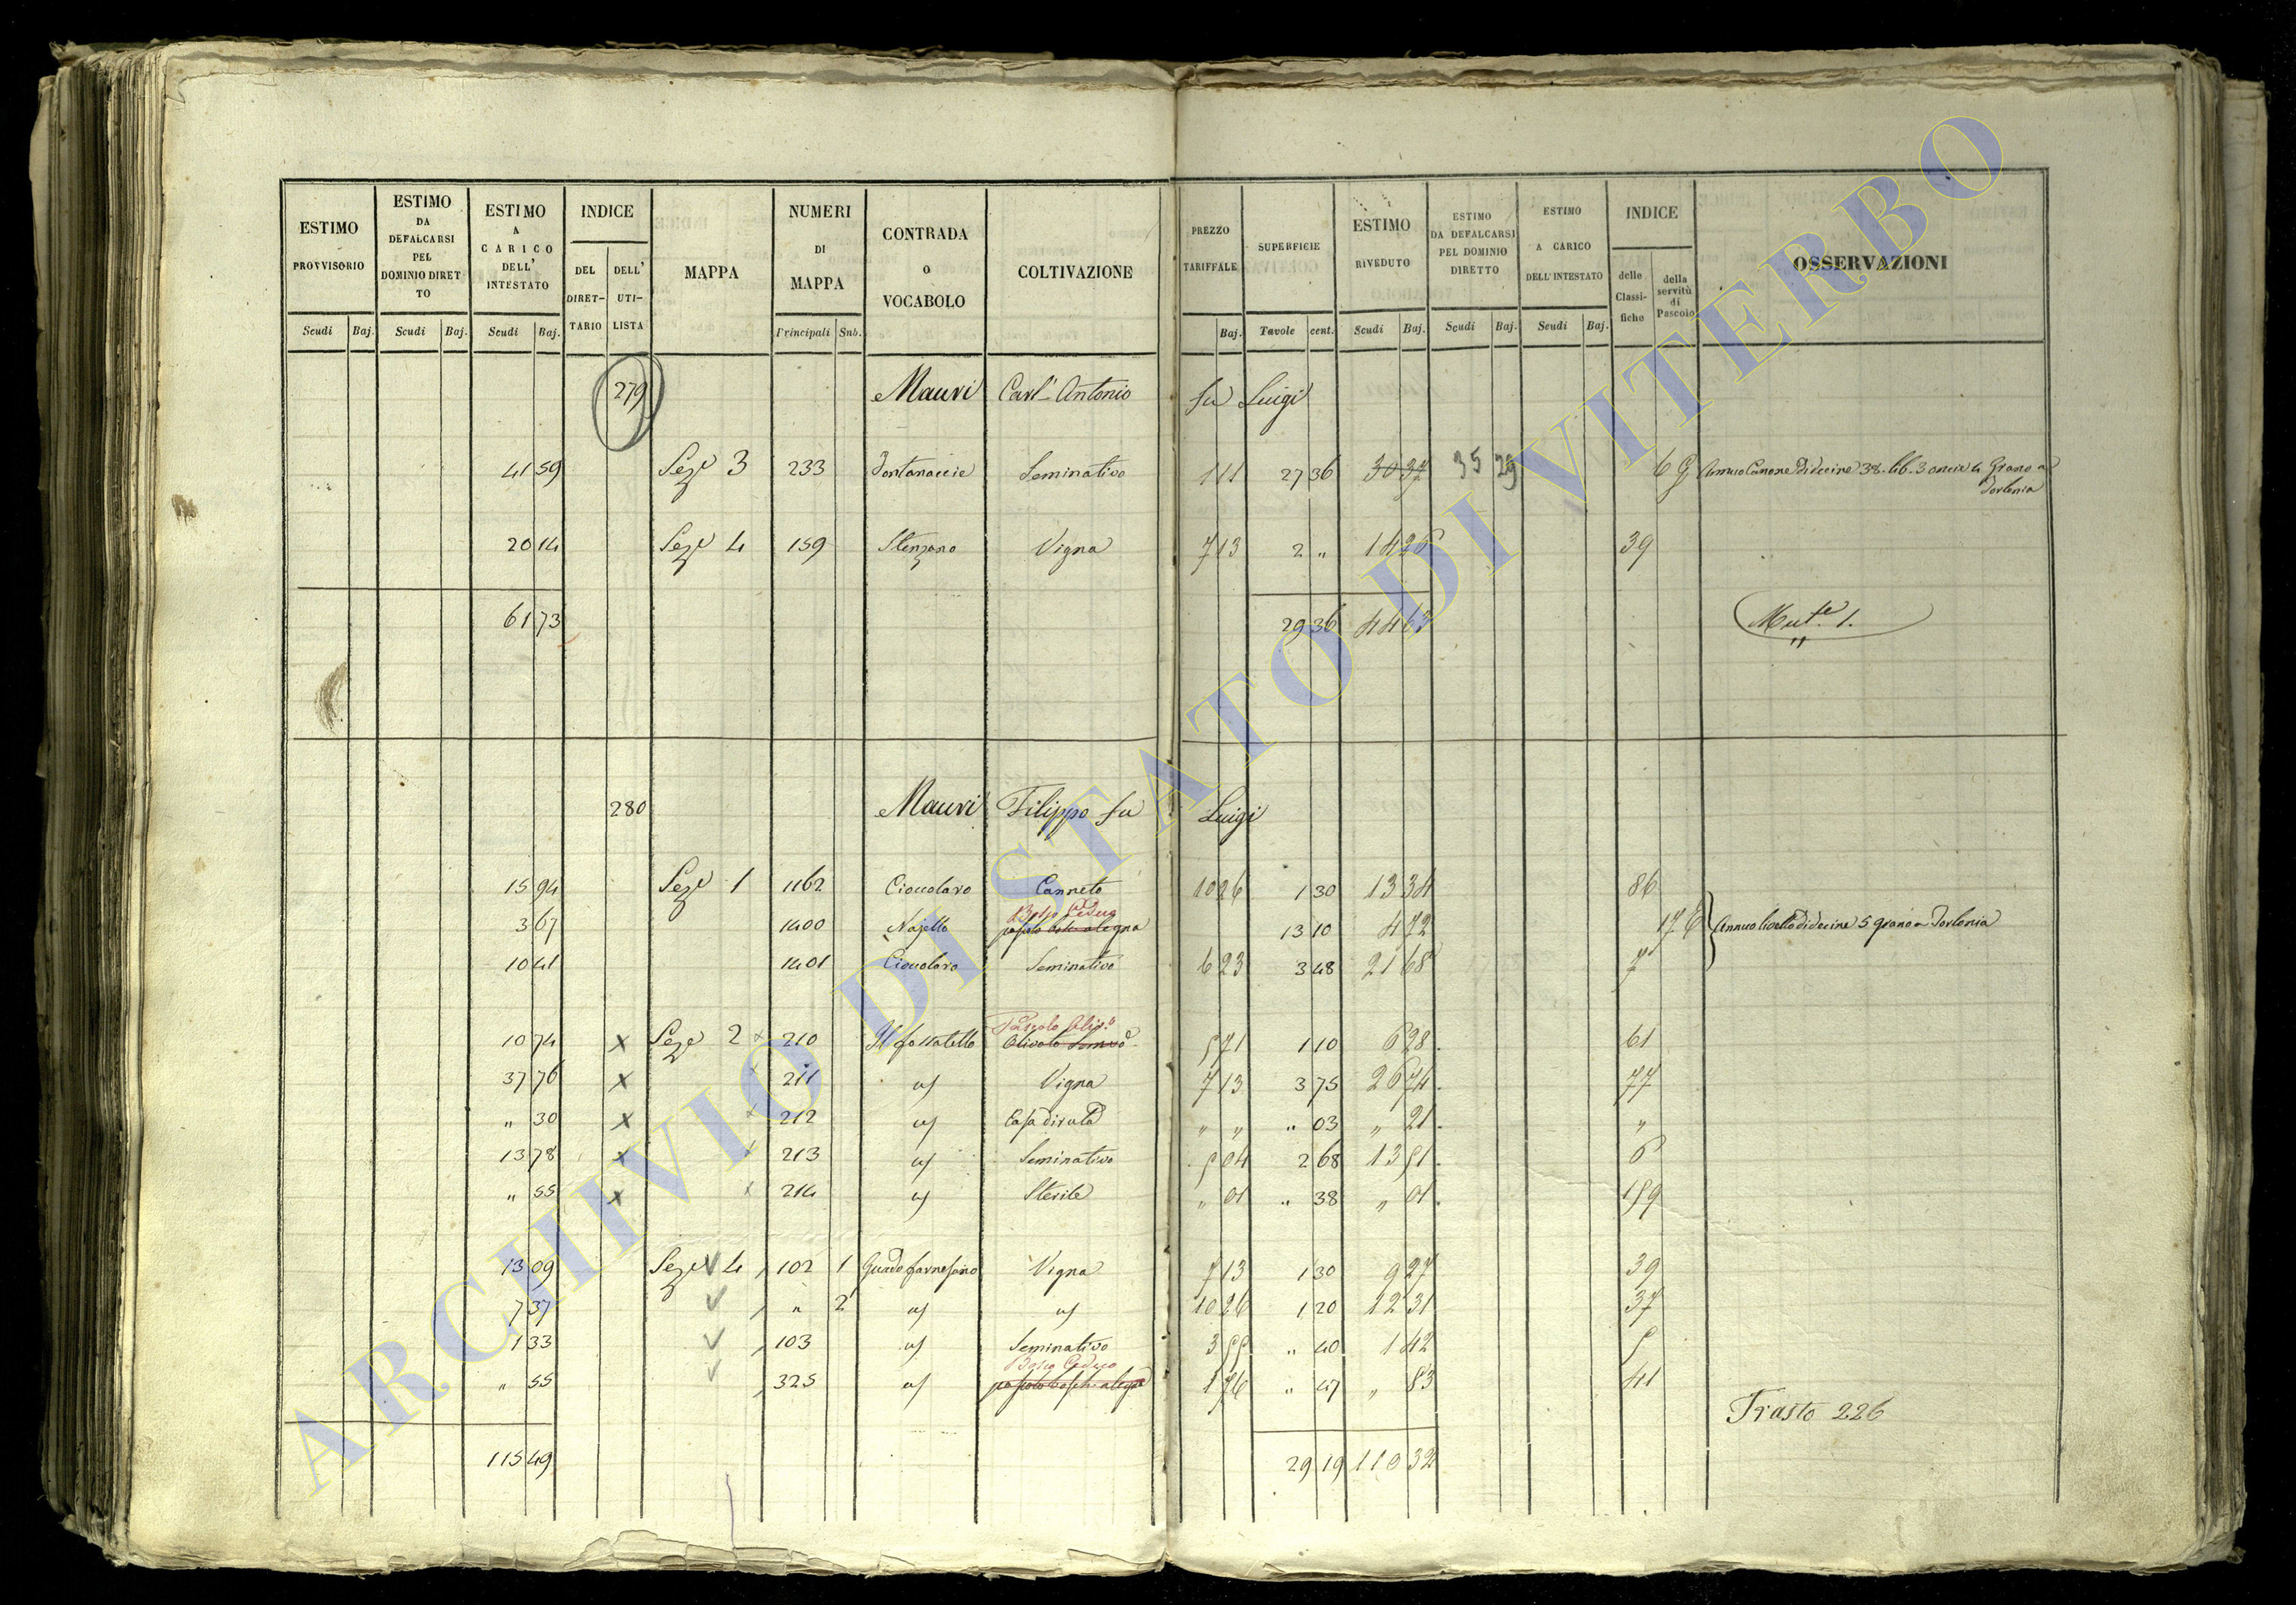 ESTIMO PROVVISORIO Scudi Baj.
ESTIMO DA DEFALCARSI PEL DOMINIO DIRET TO Scudi Baj.
ESTIMO A CARICO DELL' INTESTATO Scudi Baj.
INDICE DEL DIRET- TARIO DELL' UTI- LISTA
MAPPA
NUMERI DI MAPPA Principali Sub.
CONTRADA O VOCABOLO
COLTIVAZIONE
PREZZO TARIFFALE Baj.
SUPERFICIE Tavole cent.
ESTIMO RIVEDUTO Scudi Baj.
ESTIMO DA DEFALCARSI PEL DOMINIO DIRETTO Scudi Baj.
ESTIMO A CARICO DELL' INTESTATO Scudi Baj.
INDICE delle Classi- fiche della servitù di Pascolo
OSSERVAZIONI
279 Mauri Carl' Antonio fu Luigi
41 59 Seze 3 233 Fontanaccie Seminativo 1 11 27 36 30 37 35 29 6 G Annuo Canone di decine 38. lib. 3 oncie 4 Grano a
Torlonia
20 14 Seze 4 159 Stenzano Vigna 7 13 2 " 14 26 39
61 73 29 36 44 63 Mut.e 1.
280 Mauri Filippo fu Luigi
15 94 Seze 1 1162 Cioccolaro Canneto 10 26 1 30 13 34 86
Bosco Ceduo
3 67 1400 Najello 13 10 4 72 17 E Annuo livello di decine 5 grano a Torlonia
10 41 1401 Cioccolaro Seminativo 6 23 3 48 21 68 7
Pascolo Oliv.o
10 74 x Seze 2 x 210 Il fossatello Olivato 5 71 1 10 6 28. 61
37 76 x x 211 us Vigna 7 13 3 75 26 74. 77
" 30 x x 212 us Casa diruta " " " 03 " 21. "
13 78 x x 213 us Seminativo 5 04 2 68 13 51. 6
" 55 x x 214 us Sterile " 01 " 38 " 01. 159
13 09 Seze 4 102 1 Guado farnesano Vigna 7 13 1 30 9 27 39
7 37 " 2 us us 10 26 1 20 12 31 37
1 33 103 us Seminativo 3 55 " 40 1 42 5
Bosco Ceduo
" 55 325 us 1 76 " 47 " 83 41
Trasto 226
115 49 29 19 110 32
ARCHIVIO DI STATO DI VITERBO